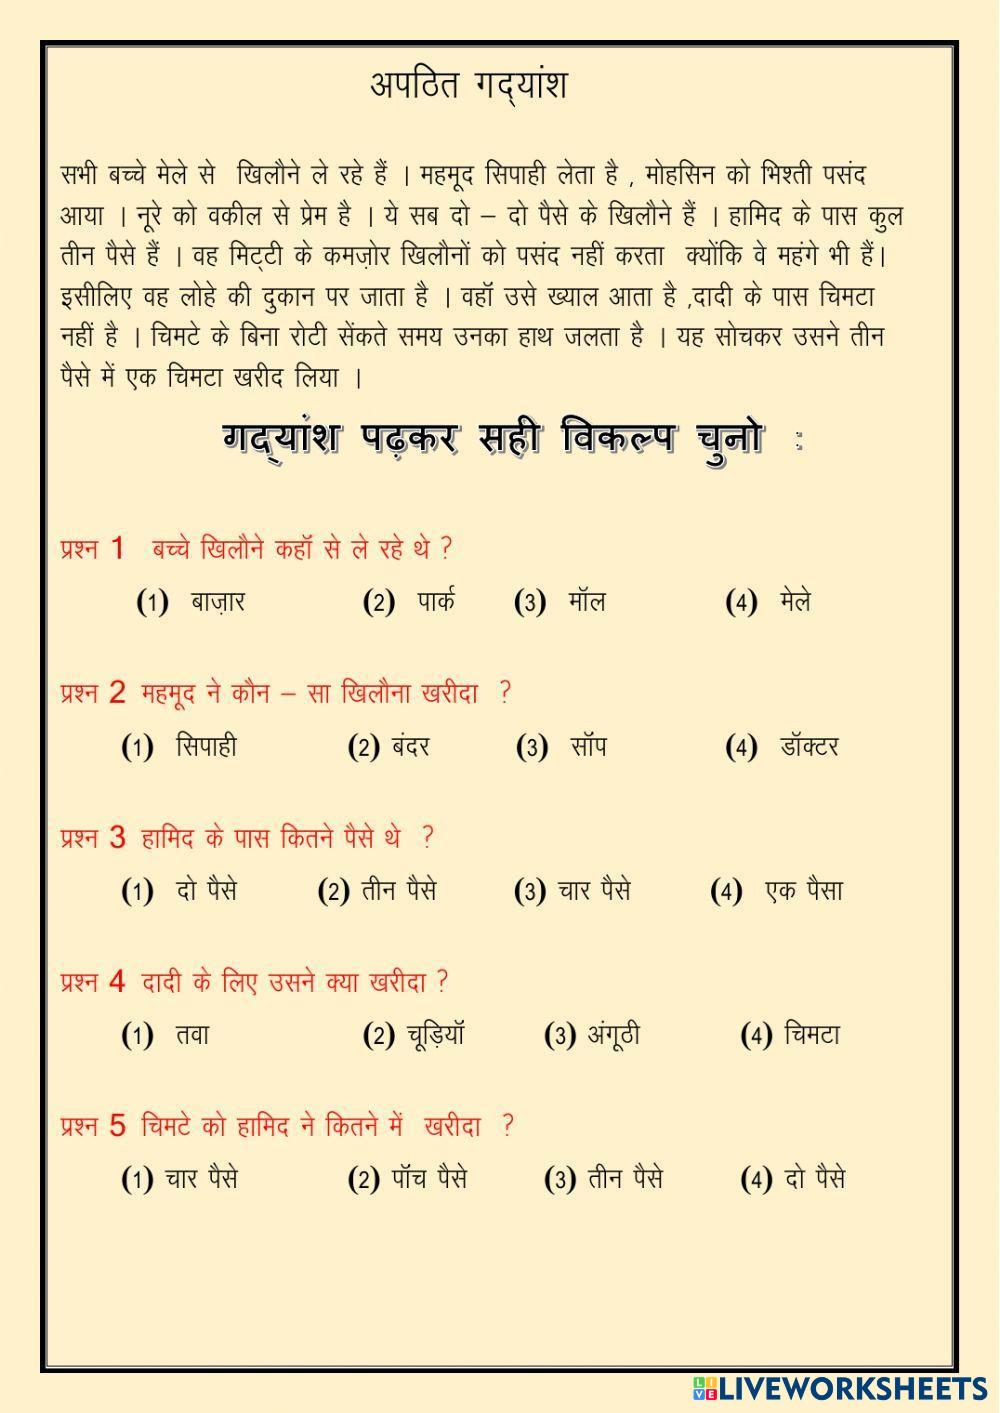 अपठित गद्यांश
सभी बच्चे मेले से खिलौने ले रहे हैं । महमूद सिपाही लेता है , मोहसिन को भिश्ती पसंद
आया । नूरे को वकील से प्रेम है । ये सब दो – दो पैसे के खिलौने हैं । हामिद के पास कुल
तीन पैसे हैं । वह मिट्टी के कमज़ोर खिलौनों को पसंद नहीं करता क्योंकि वे महंगे भी हैं।
इसीलिए वह लोहे की दुकान पर जाता है । वहॉ उसे ख्याल आता है ,दादी के पास चिमटा
नहीं है । चिमटे के बिना रोटी सेंकते समय उनका हाथ जलता है । यह सोचकर उसने तीन
पैसे में एक चिमटा खरीद लिया ।
गद्यांश पढ़कर सही विकल्प चुनो :
प्रश्न 1 बच्चे खिलौने कहॉ से ले रहे थे ?
(1) बाज़ार (2) पार्क (3) मॉल (4) मेले
प्रश्न 2 महमूद ने कौन – सा खिलौना खरीदा ?
(1) सिपाही (2) बंदर (3) सॉप (4) डॉक्टर
प्रश्न 3 हामिद के पास कितने पैसे थे ?
(1) दो पैसे (2) तीन पैसे (3) चार पैसे (4) एक पैसा
प्रश्न 4 दादी के लिए उसने क्या खरीदा ?
(1) तवा (2) चूड़ियॉ (3) अंगूठी (4) चिमटा
प्रश्न 5 चिमटे को हामिद ने कितने में खरीदा ?
(1) चार पैसे (2) पॉच पैसे (3) तीन पैसे (4) दो पैसे
LIVE LIVEWORKSHEETS